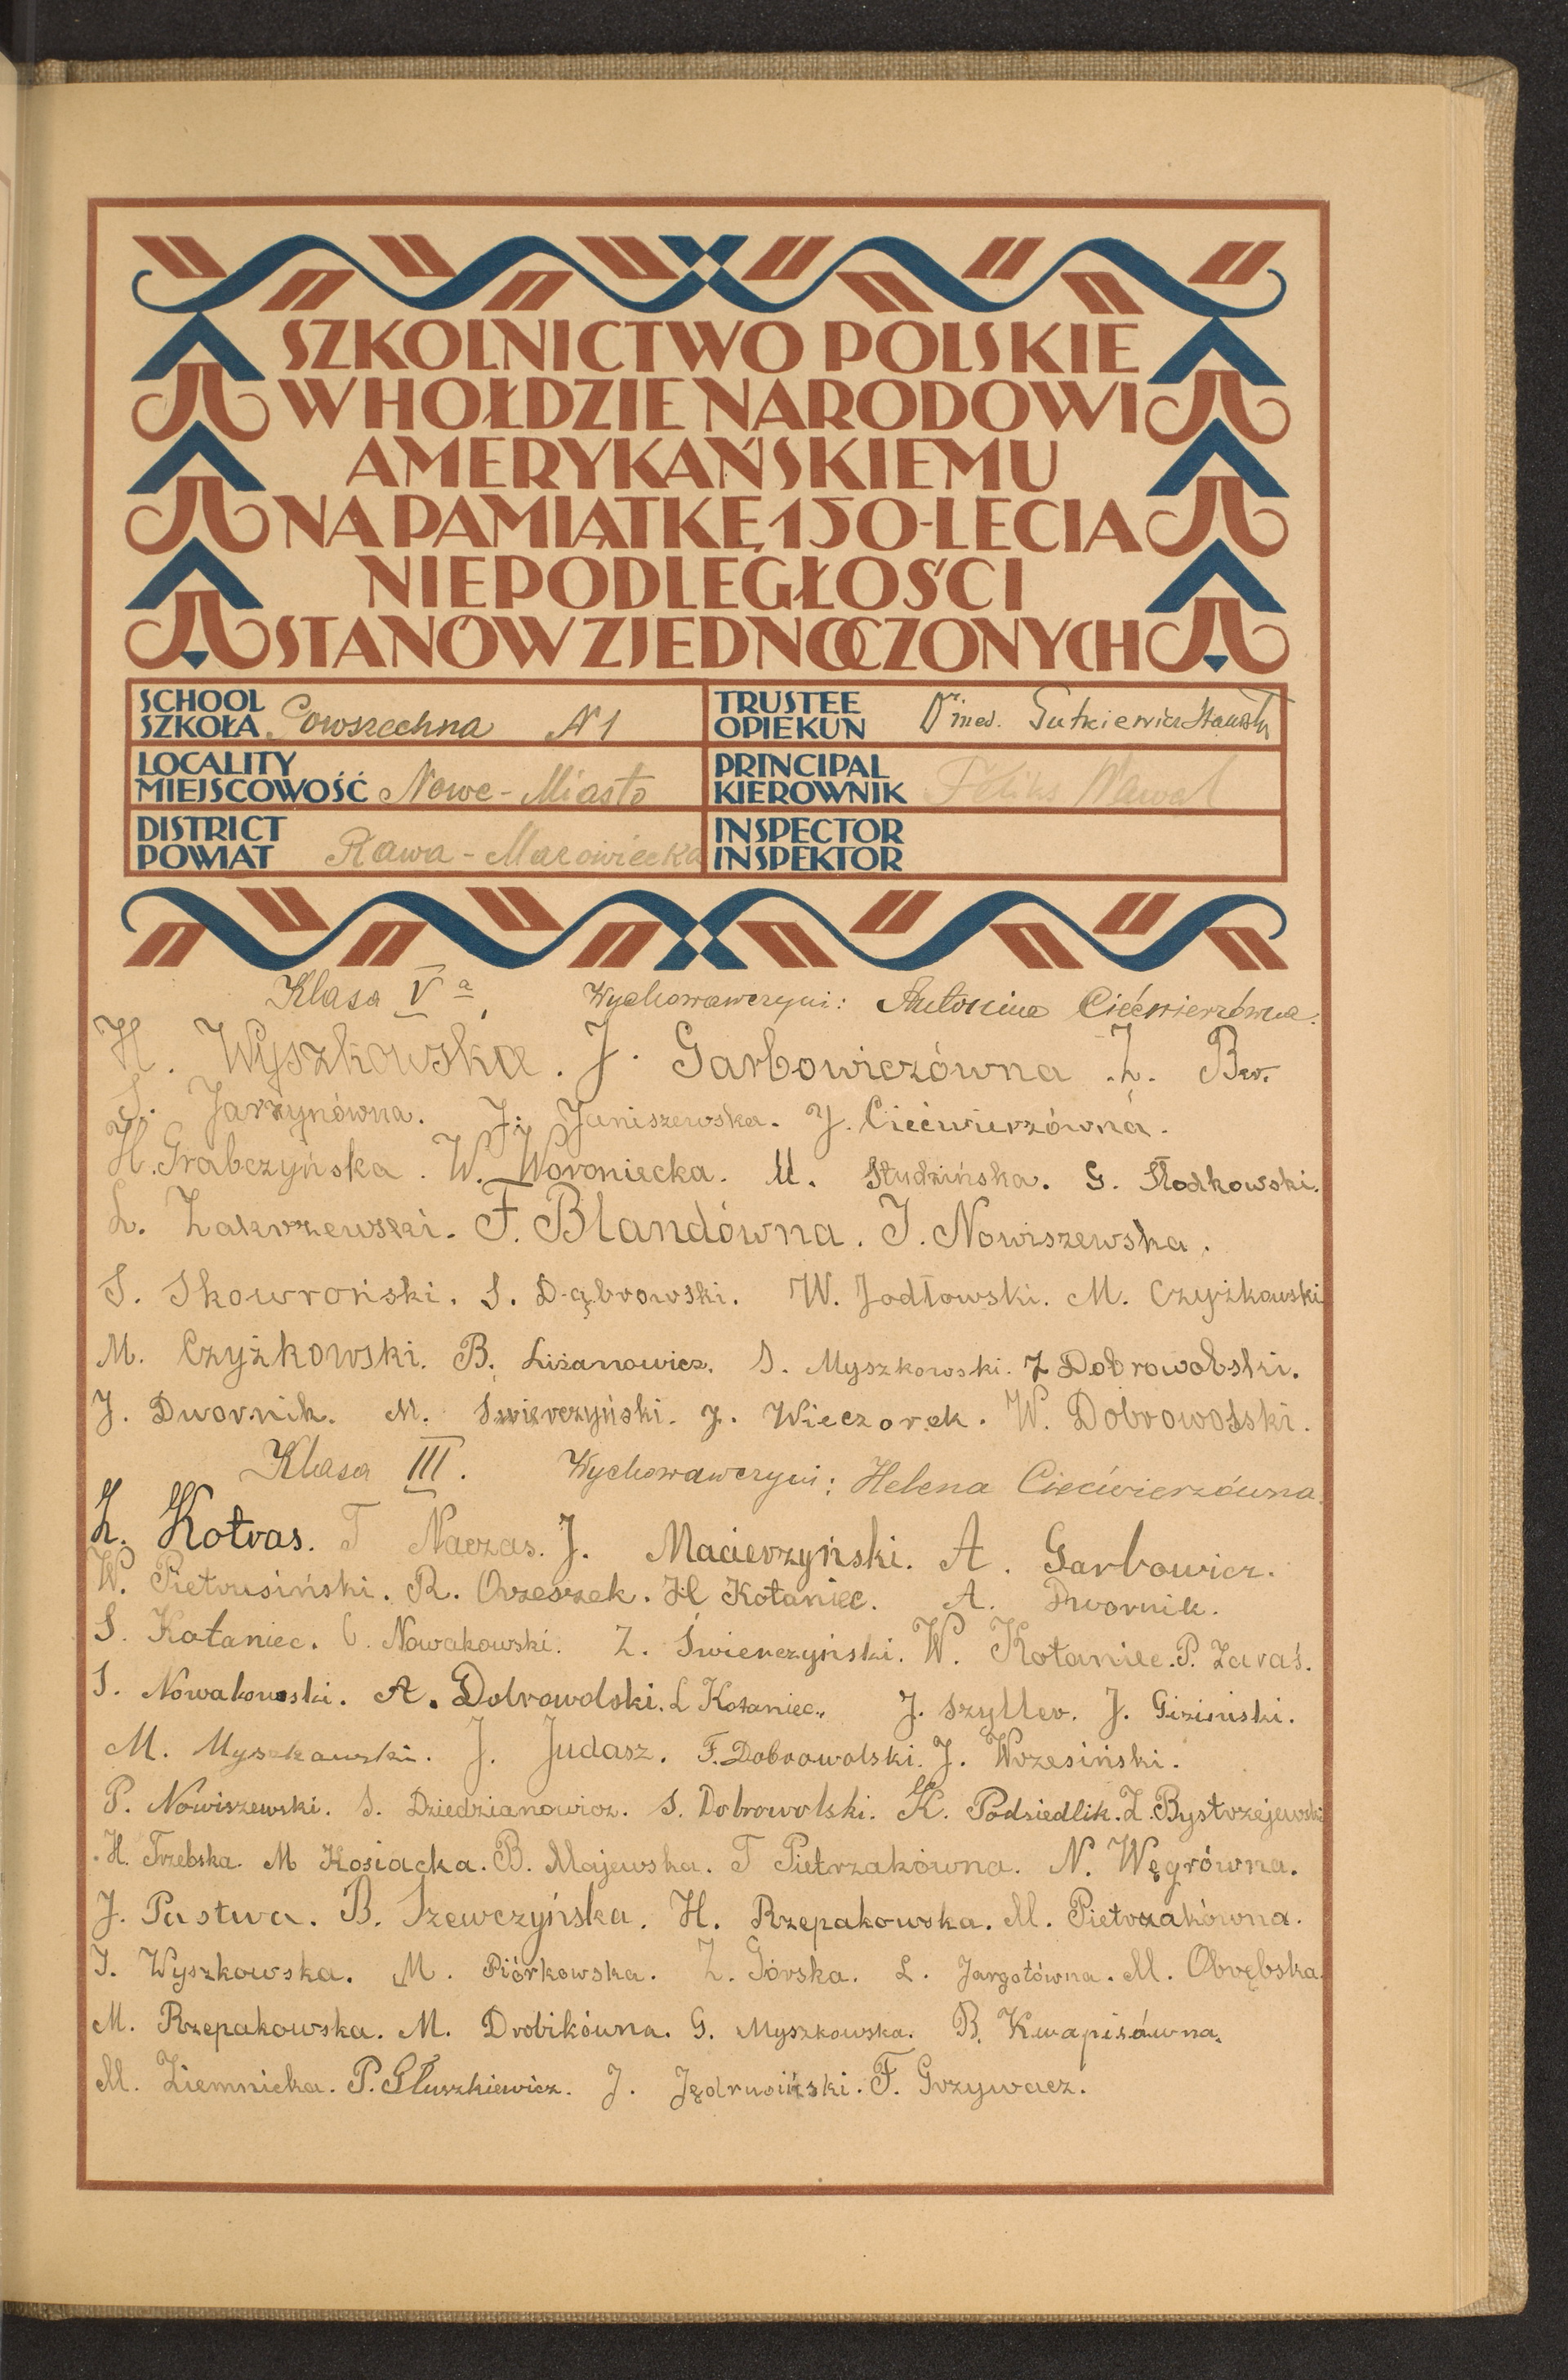 SZKOLNICTWO POLSKIE
W HOŁDZIE NARODOWI
AMERYKAŃSKIEMU
NA PAMIĄTKĘ 150-LECIA
NIEPODLEGŁOŚCI
STANÓW ZJEDNOCZONYCH
SCHOOL
SZKOŁA Powszechna N 1
TRUSTEE
OPIEKUN Dr med.
LOCALITY
MIEJSCOWOŚĆ Nowe-Miasto
PRINCIPAL
KIEROWNIK Feliks Wawal
DISTRICT
POWIAT Rawa-Mazowiecka
INSPECTOR
INSPEKTOR
Klasa Va, Wychowawczyni: Antonina Ciećwierzówna.
H. Wyszkowska. J. Garbowiczówna. Z. Bw.
S. Jarzynówna. J. Janiszewska. J. Ciećwierzówna.
H. Grabczyńska. W. Woroniecka. M. Studzińska. G. Słodkowski.
L. Zakrzewski. F. Blandówna. J. Nowiszewska.
S. Skowroński. S. Dąbrowski. W. Jodłowski. M. Czyżkowski
M. Czyżkowski. B. Liżanowicz. S. Myszkowski. Z Dobrowolski.
J. Dwornik. M. Świerczyński. J. Wieczorek. W. Dobrowolski.
Klasa III. Wychowawczyni: Helena Ciećwierzówna.
Z. Kotras. T Naczas. J. Macierzyński. A. Garbowicz.
W. Pietrusiński. R. Orzeszek. H Kołaniec. A. Dwornik.
S. Kołaniec. C. Nowakowski. Z. Świerczyński. W. Kołaniec. P. Zaraś.
S. Nowakowski. A. Dobrowolski. L Kołaniec. J. Szyller. J. Giziński.
M. Myszkowski. J. Judasz. F. Dobrowolski. J. Wrzesiński.
P. Nowiszewski. S. Dziedzianowicz. S. Dobrowolski. K. Podsiedlik. Z. Bystrzejewski
H. Trzebska. M Kosiacka. B. Majewska. T Pietrzakówna. N. Węgrówna.
J. Pastwa. B. Szewczyńska. H. Rzepakowska. M. Pietrzakówna.
J. Wyszkowska. M. Piórkowska. Z. Górska. L. Jargotówna. M. Obrębska.
M. Rzepakowska. M. Drobikówna. G. Myszkowska. B. Kwapisówna.
M. Ziemnicka. P. Głuszkiewicz. J. Jędrusiński. F. Grzywacz.